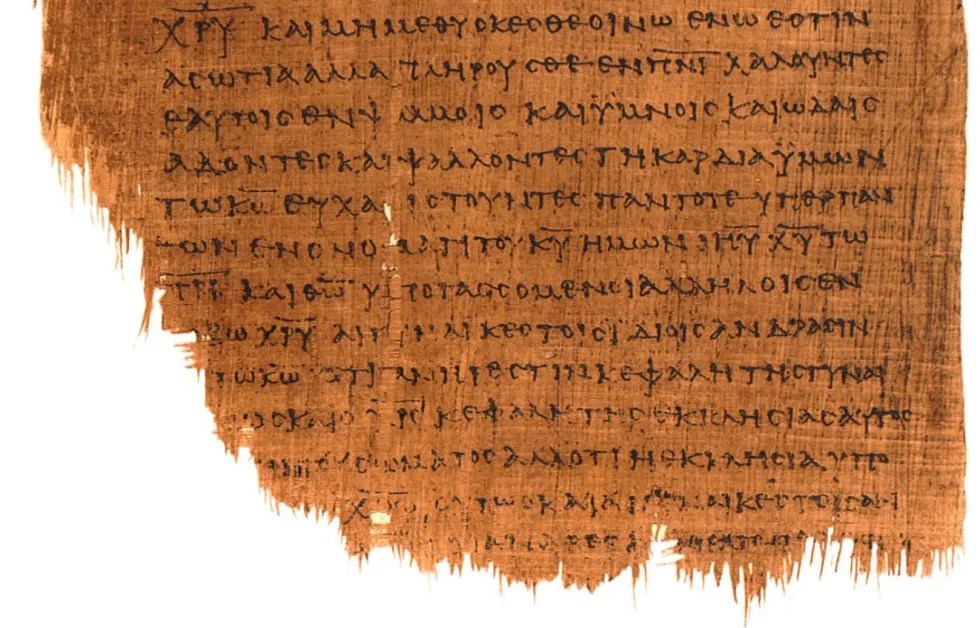 ΧΡΥ ΚΑΙ ΜΗ ΜΕΘΥΣΚΕΣΘΕ ΟΙΝΩ ΕΝ Ω ΕΣΤΙΝ
ΑΣΩΤΙΑ ΑΛΛΑ ΠΛΗΡΟΥΣΘΕ ΕΝ ΠΝΙ ΛΑΛΟΥΝΤΕΣ
ΕΑΥΤΟΙΣ ΕΝ ΨΑΛΜΟΙΣ ΚΑΙ ΫΜΝΟΙΣ ΚΑΙ ΩΔΑΙΣ
ΑΔΟΝΤΕΣ ΚΑΙ ΨΑΛΛΟΝΤΕΣ ΤΗ ΚΑΡΔΙΑ ΫΜΩΝ
ΤΩ ΚΩ ΕΥΧΑΡΙΣΤΟΥΝΤΕΣ ΠΑΝΤΟΤΕ ΥΠΕΡ ΠΑΝ
ΤΩΝ ΕΝ ΟΝΟΜΑΤΙ ΤΟΥ ΚΥ ΗΜΩΝ ΙΗΥ ΧΡΥ ΤΩ
ΠΡΙ ΚΑΙ ΘΩ ΥΠΟΤΑΣΣΟΜΕΝΟΙ ΑΛΛΗΛΟΙΣ ΕΝ
ΒΩ ΧΡΥ ΑΙ ΓΥΝΑΙΚΕΣ ΤΟΙΣ ΙΔΙΟΙΣ ΑΝΔΡΑΣΙΝ
ΤΩ ΚΩ ΟΤΙ ΑΝΗΡ ΕΣΤΙΝ ΚΕΦΑΛΗ ΤΗΣ ΓΥΝΑΙ
ΩΣ ΚΑΙ Ο ΧΡΣ ΚΕΦΑΛΗ ΤΗΣ ΕΚΚΛΗΣΙΑΣ ΑΥΤΟΣ
ΤΟΥ ΣΩΜΑΤΟΣ ΑΛΛ ΟΤΙ Η ΕΚΚΛΗΣΙΑ ΥΠΟ
ΧΡΩ ΟΥΤΩΣ ΚΑΙ ΑΙ ΓΥΝΑΙΚΕΣ ΤΟΙΣ ΑΝ